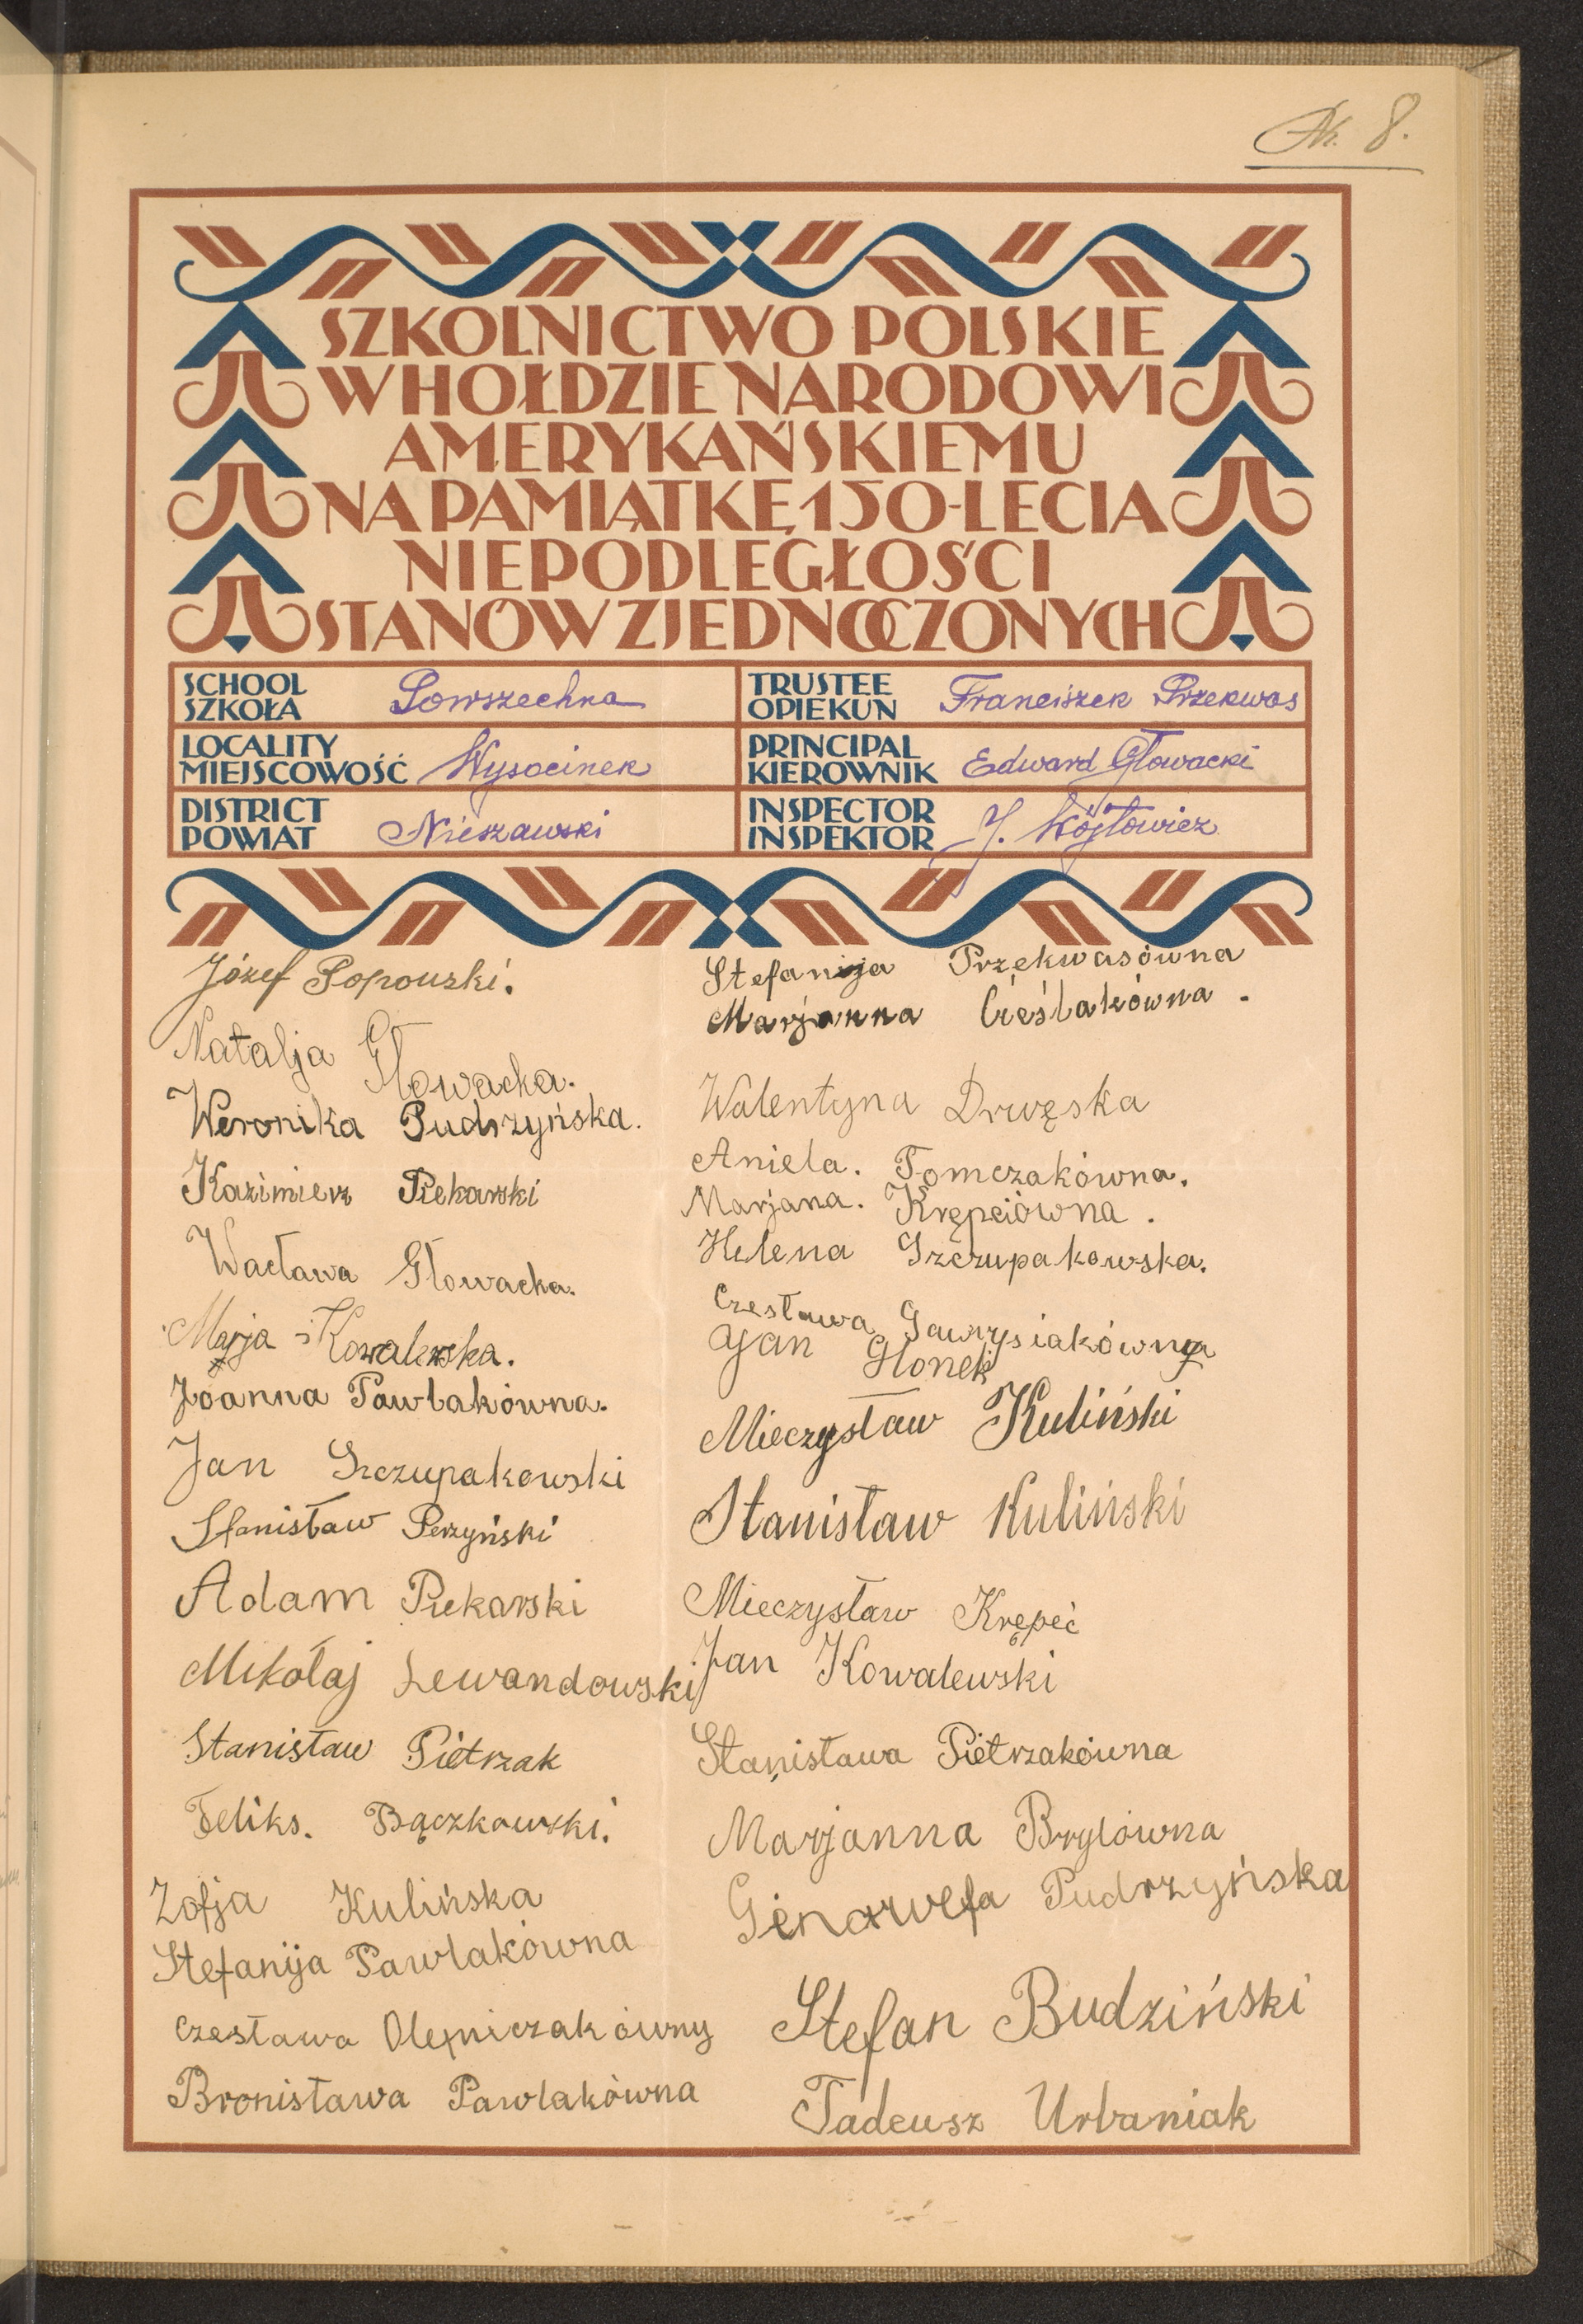 Nr. 8.
SZKOLNICTWO POLSKIE
W HOŁDZIE NARODOWI
AMERYKAŃSKIEMU
NA PAMIĄTKĘ 150-LECIA
NIEPODLEGŁOŚCI
STANÓW ZJEDNOCZONYCH
SCHOOL
SZKOŁA Powszechna
TRUSTEE
OPIEKUN Franciszek Przekwas
LOCALITY
MIEJSCOWOŚĆ Wysocinek
PRINCIPAL
KIEROWNIK Edward Głowacki
DISTRICT
POWIAT Nieszawski
INSPECTOR
INSPEKTOR J. Wójtowicz
Józef Popowski.
Natalja Głowacka.
Weronika Pudrzyńska.
Kazimierz Piekarski
Wacława Głowacka.
Marja Kowalewska.
Joanna Pawlakówna.
Jan Szczupakowski
Stanisław Perzyński
Adam Piekarski
Mikołaj Lewandowski
Stanisław Pietrzak
Feliks. Bączkowski.
Zofja Kulińska
Stefanija Pawlakówna
Czesława Olejniczakówny
Bronisława Pawlakówna
Stefanija Przekwasówna
Marjanna Cieślakówna.
Walentyna Drwęska
Aniela. Tomczakówna.
Marjana. Krępciówna.
Helena Szczupakowska.
Czesława Gawrysiakówna
Jan Glonek
Mieczysław Kuliński
Stanisław Kuliński
Mieczysław Krępeć
Jan Kowalewski
Stanisława Pietrzakówna
Marjanna Brylówna
Genowefa Pudrzyńska
Stefan Budziński
Tadeusz Urbaniak